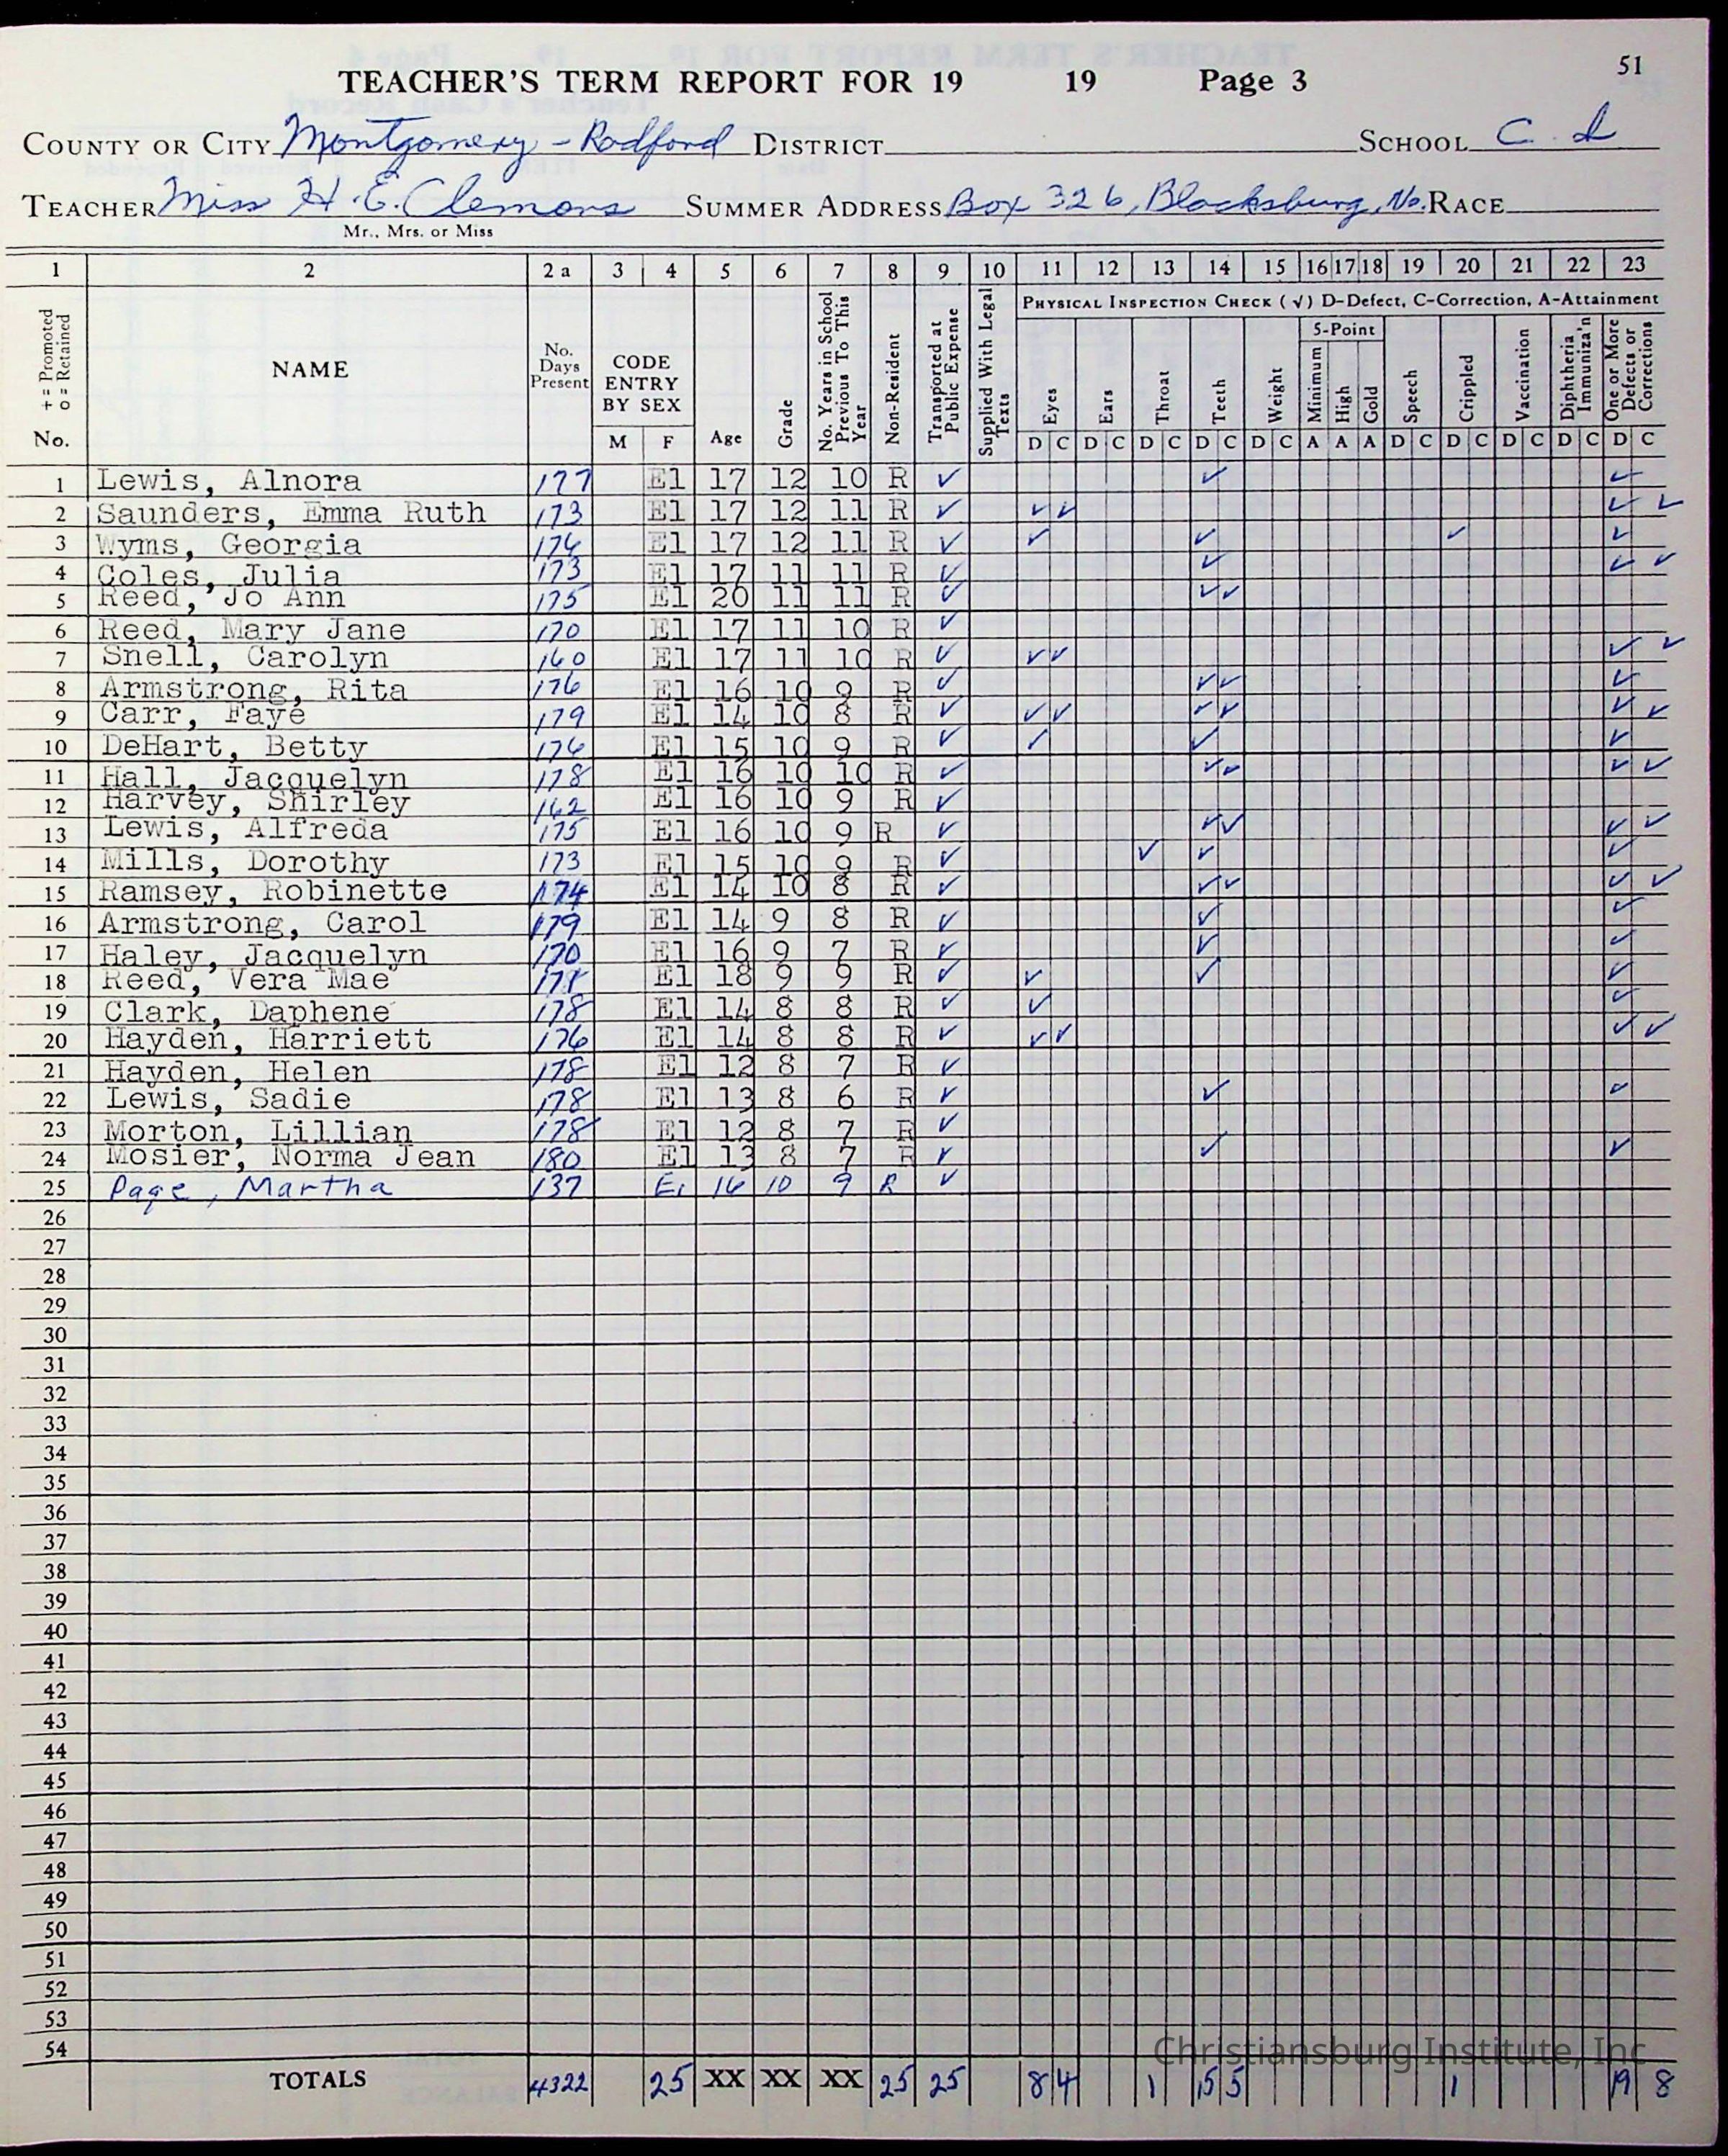 51
TEACHER'S TERM REPORT FOR 19 19 Page 3
COUNTY OR CITY Montgomery - Radford DISTRICT SCHOOL C. I
TEACHER Miss H. E. Clemons SUMMER ADDRESS Box 326, Blacksburg, Va. RACE
Mr., Mrs. or Miss
1 2 2a 3 4 5 6 7 8 9 10 11 12 13 14 15 16 17 18 19 20 21 22 23
+ = Promoted o = Retained No.
NAME
No. Days Present
CODE ENTRY BY SEX M F
Age
Grade
No. Years in School Previous To This Year
Non-Resident
Transported at Public Expense
Supplied With Legal Texts
PHYSICAL INSPECTION CHECK (√) D-Defect, C-Correction, A-Attainment
5-Point
Eyes Ears Throat Teeth Weight Minimum High Gold Speech Crippled Vaccination Diphtheria Immuniza'n One or More Defects or Corrections
D C D C D C D C D C A A A D C D C D C D C D C
1 Lewis, Alnora 177 El 17 12 10 R ✓ ✓ ✓
2 Saunders, Emma Ruth 173 El 17 12 11 R ✓ ✓ ✓ ✓ ✓
3 Wyms, Georgia 176 El 17 12 11 R ✓ ✓ ✓ ✓ ✓
4 Coles, Julia 173 El 17 11 11 R ✓ ✓ ✓ ✓
5 Reed, Jo Ann 175 El 20 11 11 R ✓ ✓ ✓
6 Reed, Mary Jane 170 El 17 11 10 R ✓
7 Snell, Carolyn 160 El 17 11 10 R ✓ ✓ ✓ ✓ ✓
8 Armstrong, Rita 176 El 16 10 9 R ✓ ✓ ✓ ✓
9 Carr, Faye 179 El 14 10 8 R ✓ ✓ ✓ ✓ ✓ ✓ ✓
10 DeHart, Betty 176 El 15 10 9 R ✓ ✓ ✓ ✓
11 Hall, Jacquelyn 178 El 16 10 10 R ✓ ✓ ✓ ✓ ✓
12 Harvey, Shirley 162 El 16 10 9 R ✓
13 Lewis, Alfreda 175 El 16 10 9 R ✓ ✓ ✓ ✓ ✓
14 Mills, Dorothy 173 El 15 10 9 R ✓ ✓ ✓ ✓
15 Ramsey, Robinette 174 El 14 10 8 R ✓ ✓ ✓ ✓ ✓
16 Armstrong, Carol 179 El 14 9 8 R ✓ ✓ ✓
17 Haley, Jacquelyn 170 El 16 9 7 R ✓ ✓ ✓
18 Reed, Vera Mae El 18 9 9 R ✓ ✓ ✓ ✓
19 Clark, Daphene 178 El 14 8 8 R ✓ ✓ ✓
20 Hayden, Harriett 176 El 14 8 8 R ✓ ✓ ✓ ✓ ✓
21 Hayden, Helen 178 El 12 8 7 R ✓
22 Lewis, Sadie 178 El 13 8 6 R ✓ ✓ ✓
23 Morton, Lillian 178 El 12 8 7 R ✓
24 Mosier, Norma Jean 180 El 13 8 7 R ✓ ✓ ✓
25 Page, Martha 137 El 16 10 9 R ✓
26
27
28
29
30
31
32
33
34
35
36
37
38
39
40
41
42
43
44
45
46
47
48
49
50
51
52
53
54
Christiansburg Institute, Inc
TOTALS 4322 25 XX XX XX 25 25 8 4 1 15 5 1 19 8